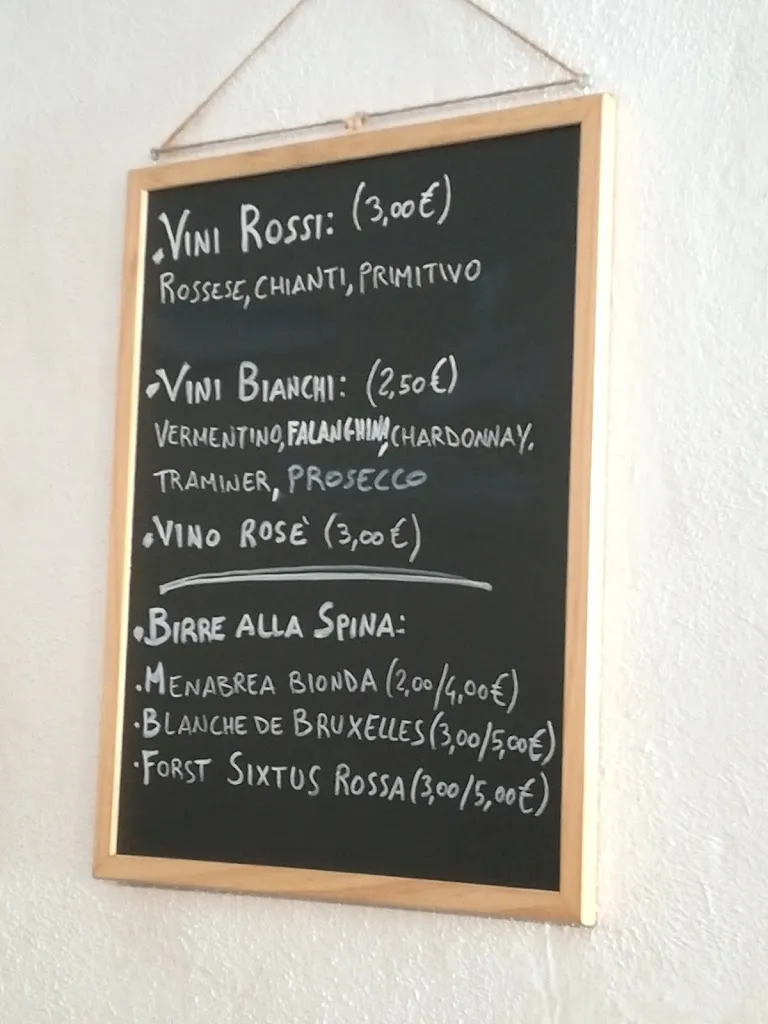 .VINI ROSSI: (3,00€)
ROSSESE, CHIANTI, PRIMITIVO
.VINI BIANCHI: (2,50€)
VERMENTINO, FALANGHINA, CHARDONNAY,
TRAMINER, PROSECCO
.VINO ROSÈ (3,00€)
.BIRRE ALLA SPINA:
.MENABREA BIONDA (2,00/4,00€)
.BLANCHE DE BRUXELLES (3,00/5,00€)
.FORST SIXTUS ROSSA (3,00/5,00€)